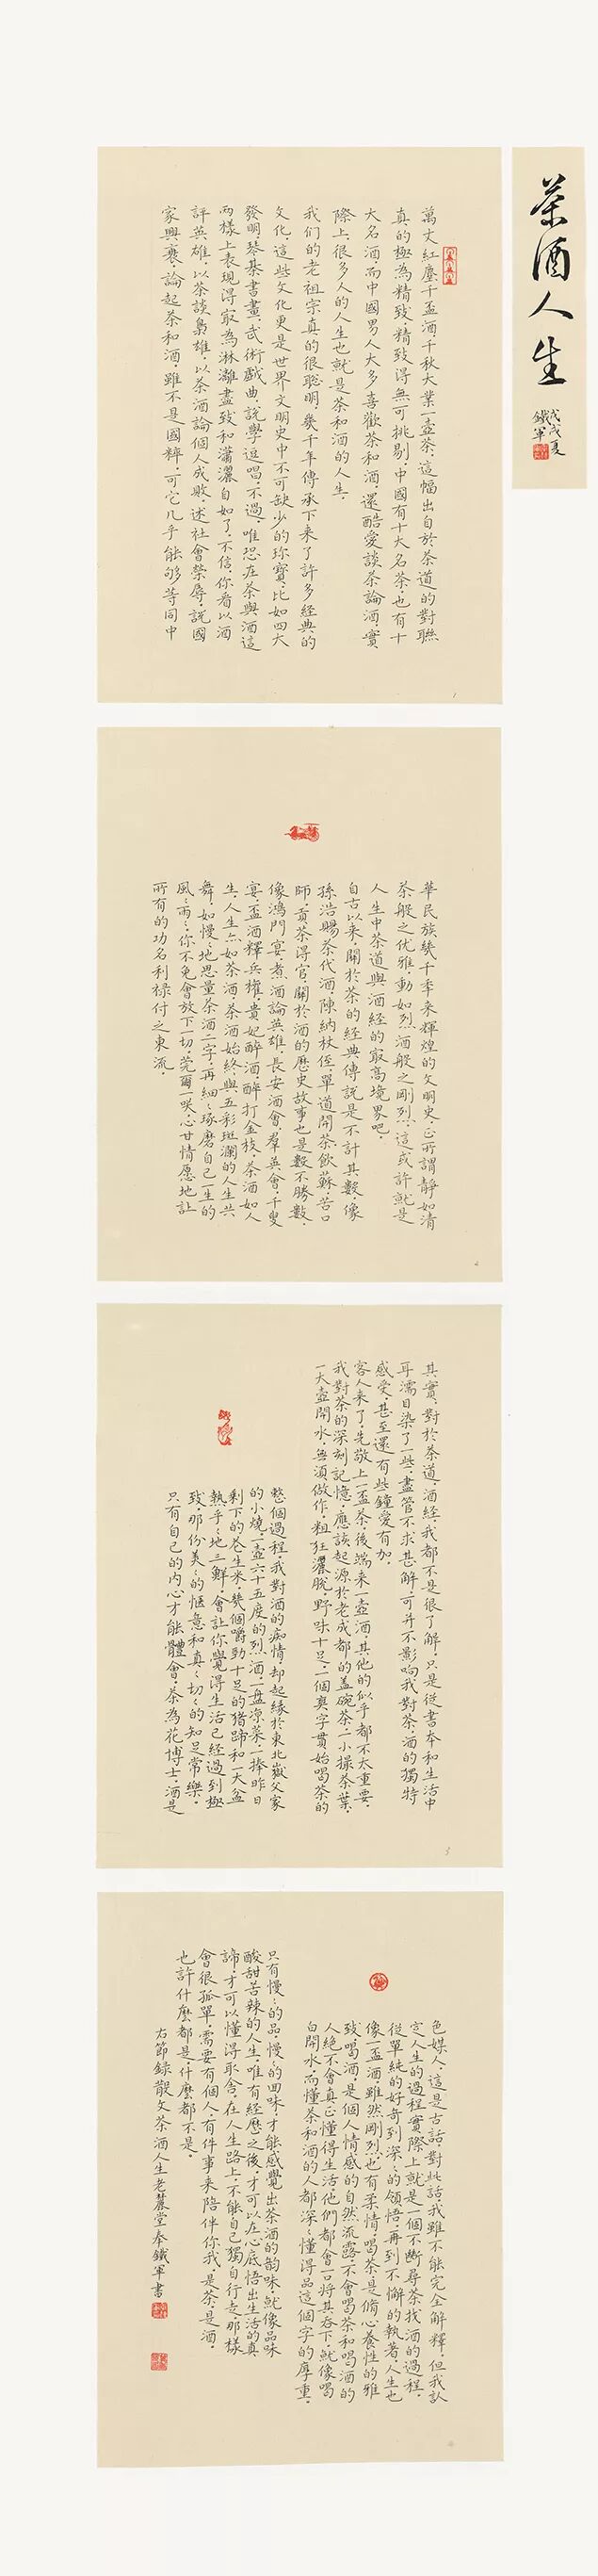 茶酒人生
戊戌夏
鐵軍
萬丈紅塵千盃酒千秋大業一壺茶，這幅出自於茶道的對聯
真的極為精致，精致得無可挑剔，中國有十大名茶，也有十
大名酒，而中國男人大多喜歡茶和酒，還酷愛談茶論酒，實
際上，很多人的人生也就是茶和酒的人生，
我们的老祖宗真的很聪明，幾千年傳承下來了許多經典的
文化，這些文化更是世界文明史中不可缺少的珎寶，比如四大
發明琴棊書畫武術戲曲，說學逗唱，不過，唯恐在茶與酒這
两樣上表現得寂為淋灕盡致和瀟灑自如了，不信，你看以酒
評英雄，以茶談梟雄，以茶酒論個人成敗，述社會榮辱，說國
家興衰，論起茶和酒，雖不是國粹，可它几乎能够等同中
華民族幾千年来輝煌的文明史，正所謂靜如清
茶般之优雅，動如烈酒般之剛烈，這或許就是
人生中茶道與酒經的寂高境界吧，
自古以来，關於茶的經典傳說是不計其數，像
孫浩賜茶代酒，陳納杖侄，單道開茶飲蘇，苦口
師，貢茶得官，關於酒的歷史故事也是數不勝數，
像鴻門宴，煮酒論英雄，長安酒會，羣英會，千叟
宴，盃酒釋兵權，貴妃醉酒，醉打金枝，茶酒如人
生，人生亦如茶酒，茶酒始終與五彩斑瀾的人生共
舞，如慢〻地思量茶酒二字，再細〻琢磨自己一生的
風〻雨〻，你不免會放下一切，莞爾一咲，心甘情愿地让
所有的功名利禄付之東流，
其實，對於茶道，酒经，我都不是很了解，只是從書本和生活中
耳濡目染了一些，盡管不求甚解，可并不影响我對茶，酒的獨特
感受，甚至還有些鐘愛有加，
客人来了，先敬上一盃茶，後端来一壺酒，其他的似乎都不太重要，
我對茶的深刻記憶，應該起源於老成都的盖碗茶，一小撮茶葉，
一大壺開水，無須做作，粗狂灑脫，野味十足，一個爽字貫始喝茶的
整個過程，我對酒的痴情，却起緣於東北嶽父家
的小燒，一壺六十五度的烈酒，一盘涼菜，一捧昨日
剩下的花生米，幾個嚼勁十足的猪蹄和一大盆
熱乎〻地三鮮，會让你覺得生活已經過到極
致，那份美〻的惬意和真〻切〻的知足常樂，
只有自己的内心才能體會，茶為花博士，酒是
色媒人，這是古話，對此話，我雖不能完全解釋，但我認
定人生的過程實際上就是一個不斷尋茶找酒的過程，
從單純的好奇到深〻的領悟，再到不懈的執著，人生也
像一盃酒雖然剛烈也有柔情，喝茶，是脩心養性的雅
致，喝酒，是個人情感的自然流露，不會喝茶和喝酒的
人绝不會真正懂得生活，他們都會一口将其吞下，就像喝
白開水，而懂茶和酒的人都深〻懂得品這個字的厚重，
只有慢〻的品，慢〻的回味，才能感覺出茶酒的韵味，就像品味
酸甜苦辣的人生，唯有經歷之後，才可以在心底悟出生活的真
諦，才可以懂得取舍，在人生路上，不能自己獨自行走，那樣
會很孤單，需要有個人，有件事来陪伴你我，是茶，是酒，
也許什麼都是，什麼都不是，
右節録散文茶酒人生老麓堂奉鐵軍書